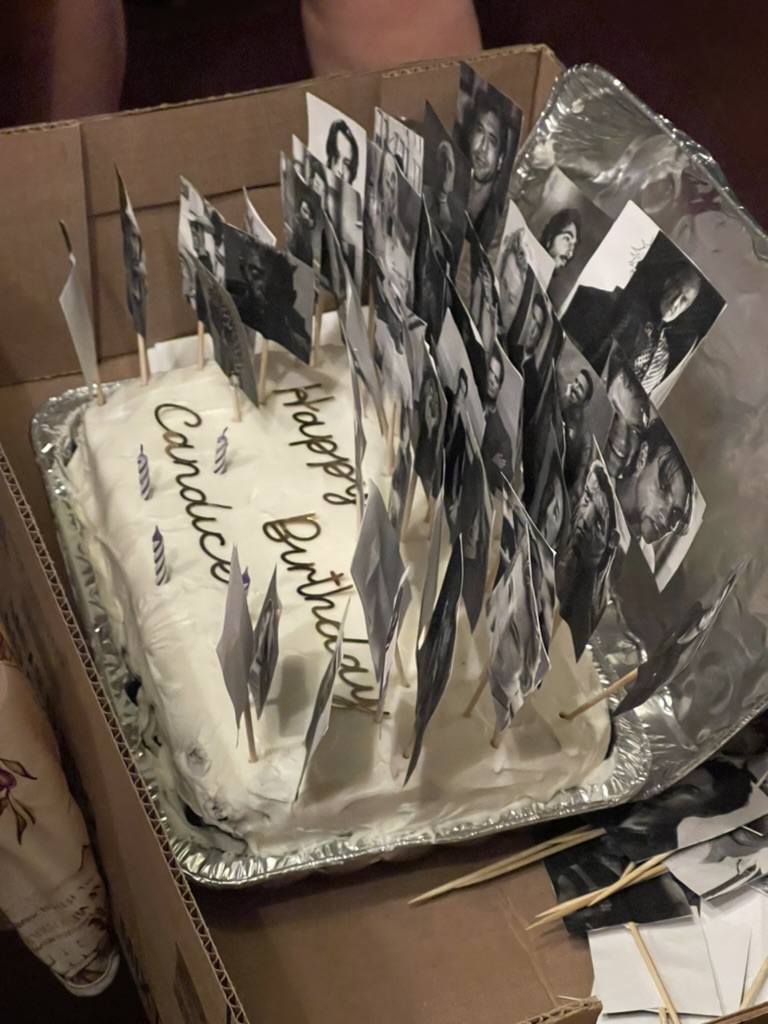 Happy
Birthday
Candice